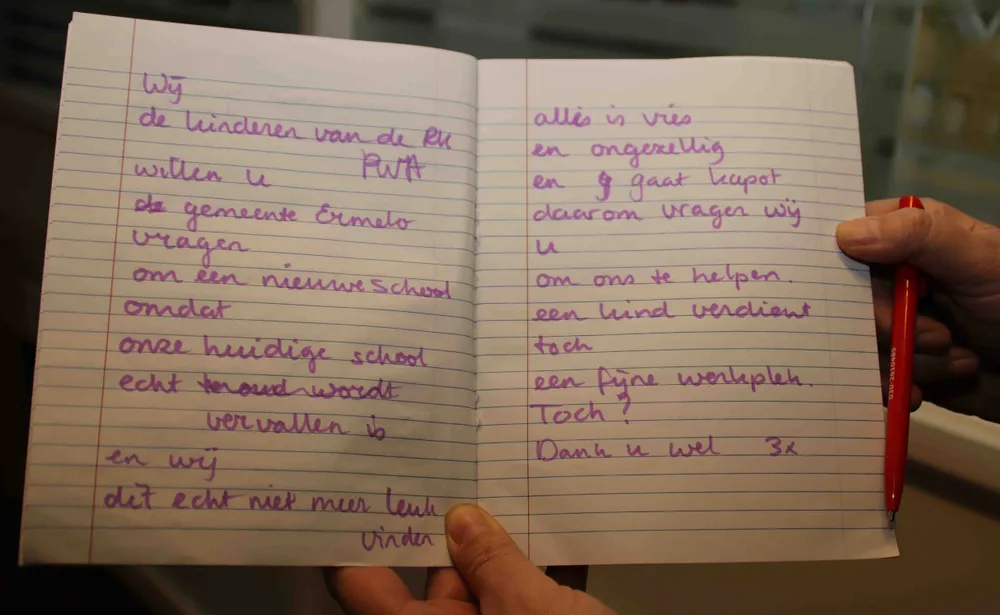 Wij
de kinderen van de RK
PWA
willen u
de gemeente Ermelo
vragen
om een nieuwe school
omdat
onze huidige school
echt te oud wordt
vervallen is
en wij
dit echt niet meer leuk
vinden
alles is vies
en ongezellig
en gaat kapot
daarom vragen wij
u
om ons te helpen.
een kind verdient
toch
een fijne werkplek.
Toch?
Dank u wel 3x